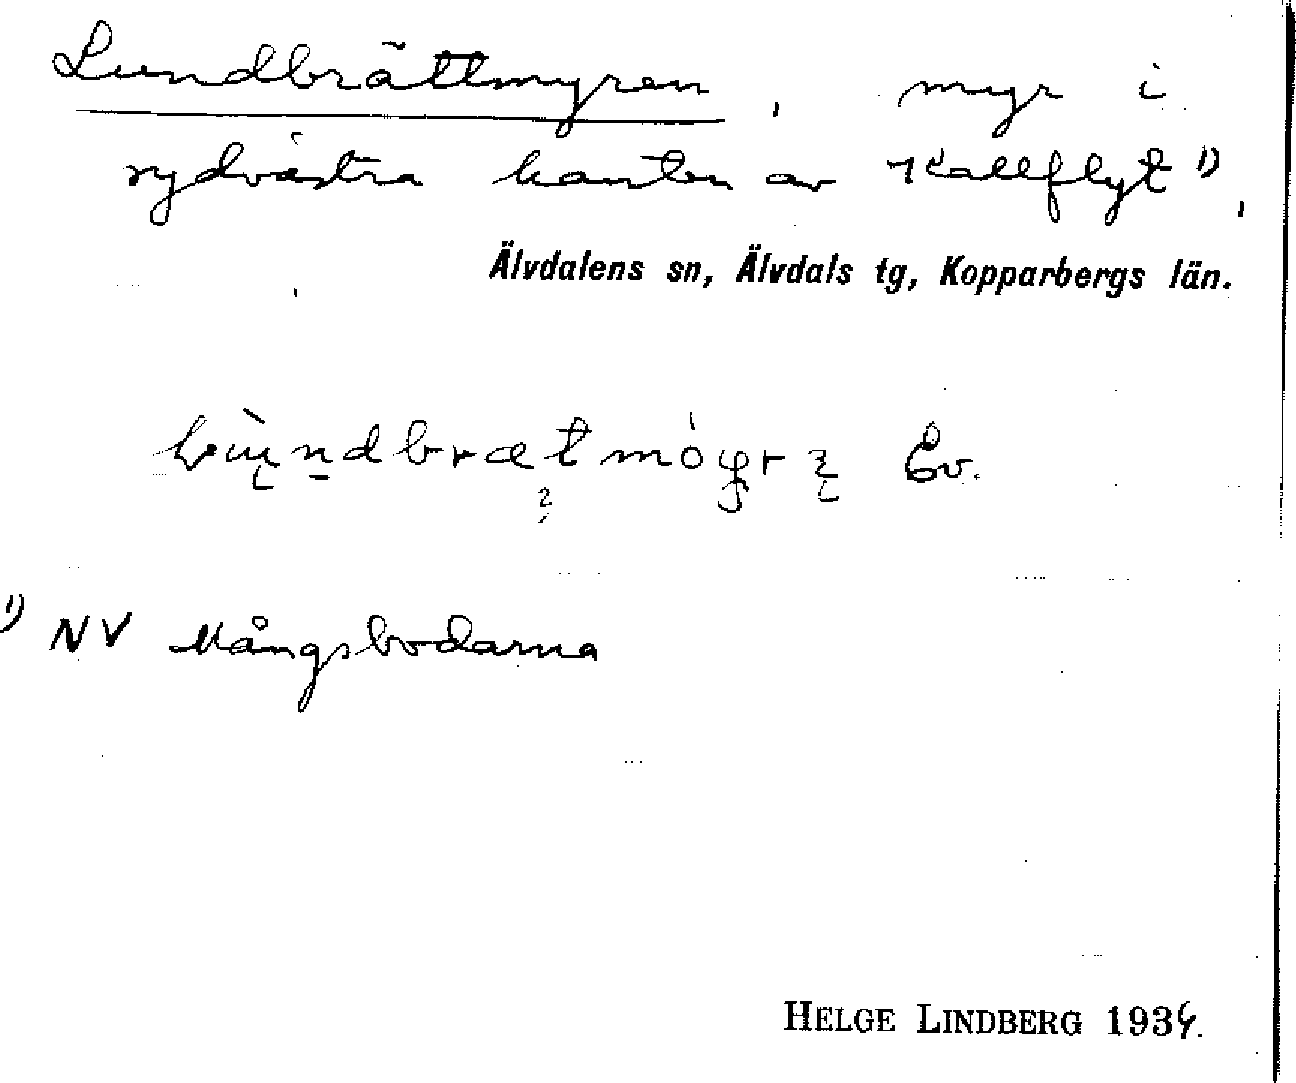 Lundbrättmyren, myr i
sydvästra kanten av Kallflyt 1),
Älvdalens sn, Älvdals tg, Kopparbergs län.
Ev.
1) NV Mångsbodarna
HELGE LINDBERG 193